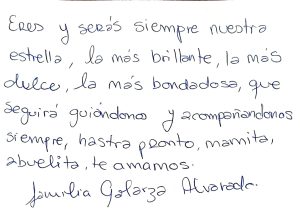 Eres y serás siempre nuestra
estrella, la más brillante, la más
dulce, la más bondadosa, que
seguirá guiándonos y acompañándonos
siempre, hastra pronto, mamita,
abuelita, te amamos.
Familia Galarza Alvarado.